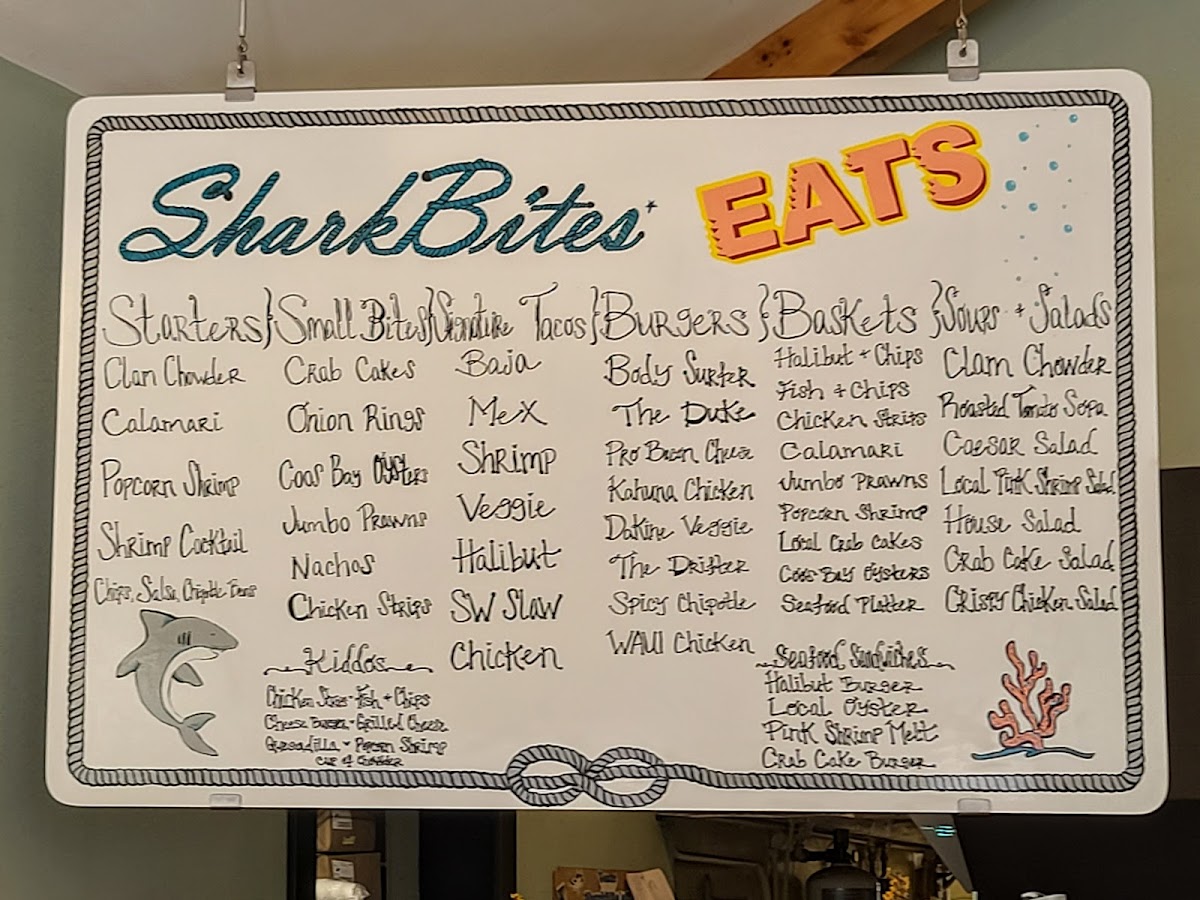 SharkBites EATS
Starters
Clam Chowder
Calamari
Popcorn Shrimp
Shrimp Cocktail
Chips, Salsa, Chipotle
Small Bites
Crab Cakes
Onion Rings
Coos Bay Oysters
Jumbo Prawns
Nachos
Chicken Strips
Kiddos
Chicken Strips - Fish + Chips
Cheese Burger - Grilled Cheese
Quesadilla - Popcorn Shrimp
Cup of Chowder
Signature Tacos
Baja
Mex
Shrimp
Veggie
Halibut
SW Slaw
Chicken
Burgers
Body Surfer
The Duke
Pro Bacon Cheese
Kahuna Chicken
Dakine Veggie
The Drifter
Spicy Chipotle
WAUI Chicken
Baskets
Halibut + Chips
Fish + Chips
Chicken Strips
Calamari
Jumbo Prawns
Popcorn Shrimp
Local Crab Cakes
Coos Bay Oysters
Seafood Platter
Seafood Sandwiches
Halibut Burger
Local Oyster
Pink Shrimp Melt
Crab Cake Burger
Soups + Salads
Clam Chowder
Roasted Tomato Sopa
Caesar Salad
Local Pink Shrimp Salad
House Salad
Crab Cake Salad
Crispy Chicken Salad